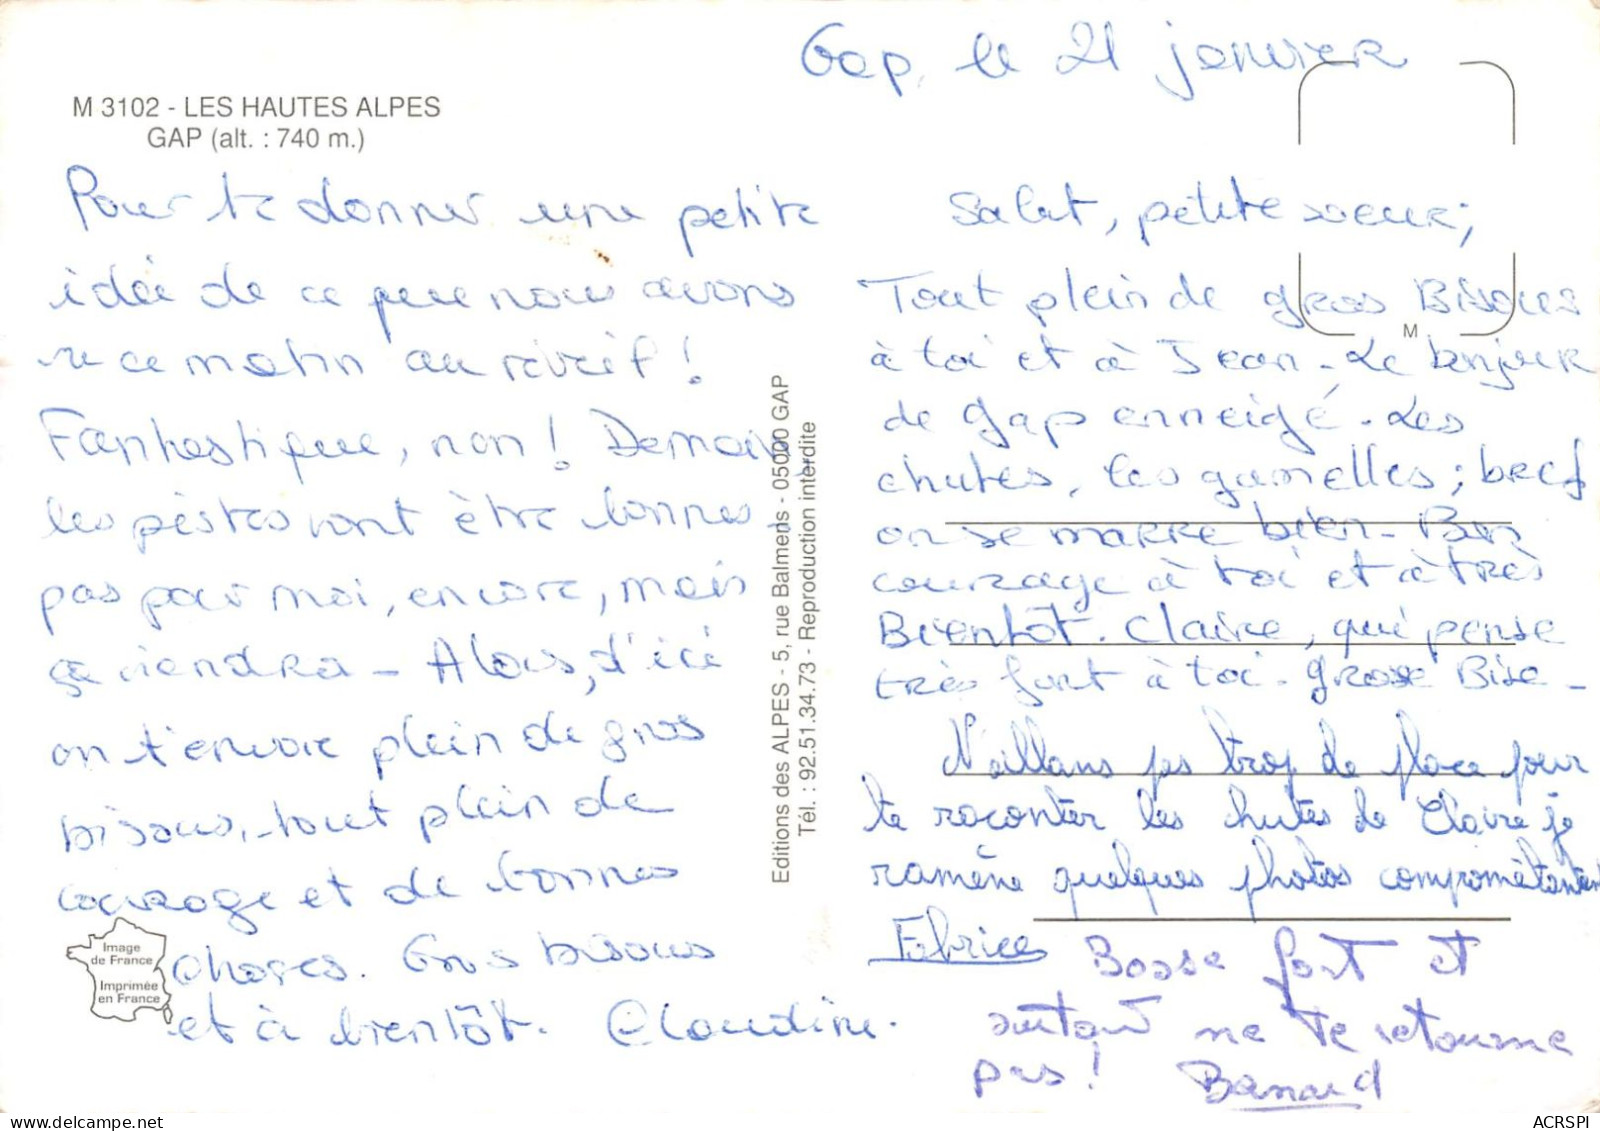 Gap, le 21 janvier
M 3102 - LES HAUTES ALPES
GAP (alt. : 740 m.)
Pour te donner une petite
idée de ce que nous avons
vu ce matin au réveil !
Fantastique, non ! Demain,
les pistes vont être bonnes,
pas pour moi, encore, mais
ça viendra - Alors, d'ici
on t'envoie plein de gros
bisous, tout plein de
courage et de bonnes
choses. Gros bisous
et à bientôt. Claudine.
Image
de France
Imprimée
en France
Editions des ALPES - 5, rue Balmens - 05000 GAP
Tél. : 92.51.34.73 - Reproduction interdite
M
Salut, petite soeur,
Tout plein de gros Bisous
à toi et à Jean. Le bonjour
de Gap enneigé. Les
chutes, les gamelles; bref
on se marre bien - Bon
courage à toi et à très
Bientôt. Claire, qui pense
très fort à toi. Grosse Bise -
N'aillans pas trop de place pour
te raconter les chutes de Claire je
ramène quelques photos comprométantes
Fabrice
Bosse fort et
surtout ne te retourne
pas !
Bernard
ACRSPI